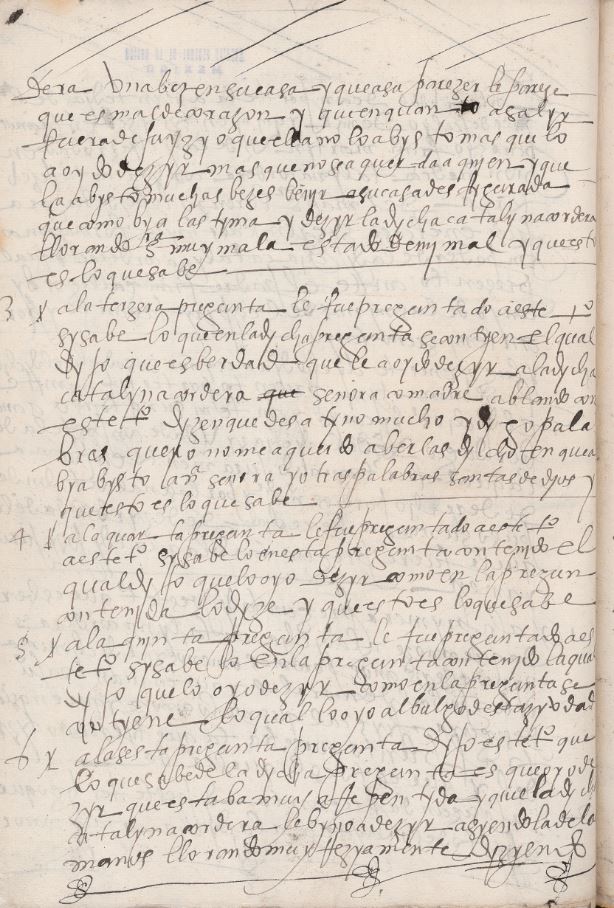 dera Una bez en su casa y que a su parezer le pareze
que es mas de corazon y quen quan to a salyr
fuera de juyzyo quella no lo a bysto mas que lo
a oydo dezyr mas que no se a quer da a quyen y que
la a bysto muchas bezes benyr a su casa desfygurada
que como bya lastyma y dezyr la dycha catalyna cordera
llorando muy mala estado de my mal y questo
es lo que sabe
3 y a la terzera pregunta le fue preguntado a este to
sy sabe lo quen la dycha pregunta se contyen el qual
dyjo que es berdad que le a oydo dezyr a la dycha
catalyna cordera que señora comadre ablando con
este to dyzen que desatyno mucho y dygo pala
bras que yo no me aquerdo aber las dicho en que a
bya bysto a nra señora y otras palabras santas de dyos y
que esto es lo que sabe
4 y a la quarta pregunta le fue preguntado a este to
a este to sy sabe lo en esta pregunta contenydo el
qual dyjo que lo oyo dezyr como en la pregun
contenyda lo dyze y que esto es lo que sabe
5 y a la quynta pregunta le fue preguntado a es
te to sy sabe lo en la pregunta contenydo la qual
dyjo que lo oyo dezyr como en la pregunta se
contyene lo qual lo oyo al bulgo desta zyudad
6 y a la sesta pregunta pregunta dyjo este to que
lo que sabe de la dycha pregunta es que oyo de
zyr que estaba muy arrepentyda y que la dycha
catalyna cordera le byno a dezyr azyendo la de la
manos llorando muy rezyamente dyzyendo